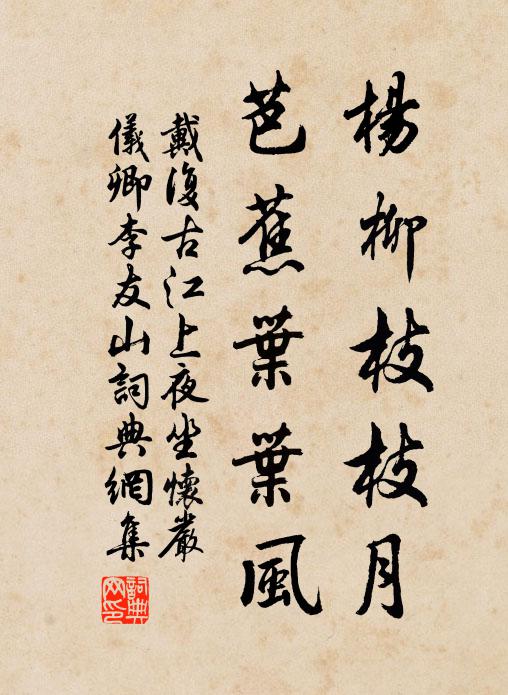 楊柳枝枝月
芭蕉葉葉風
戴復古江上夜坐懷嚴
儀卿李友山詞典網集
詞典網印